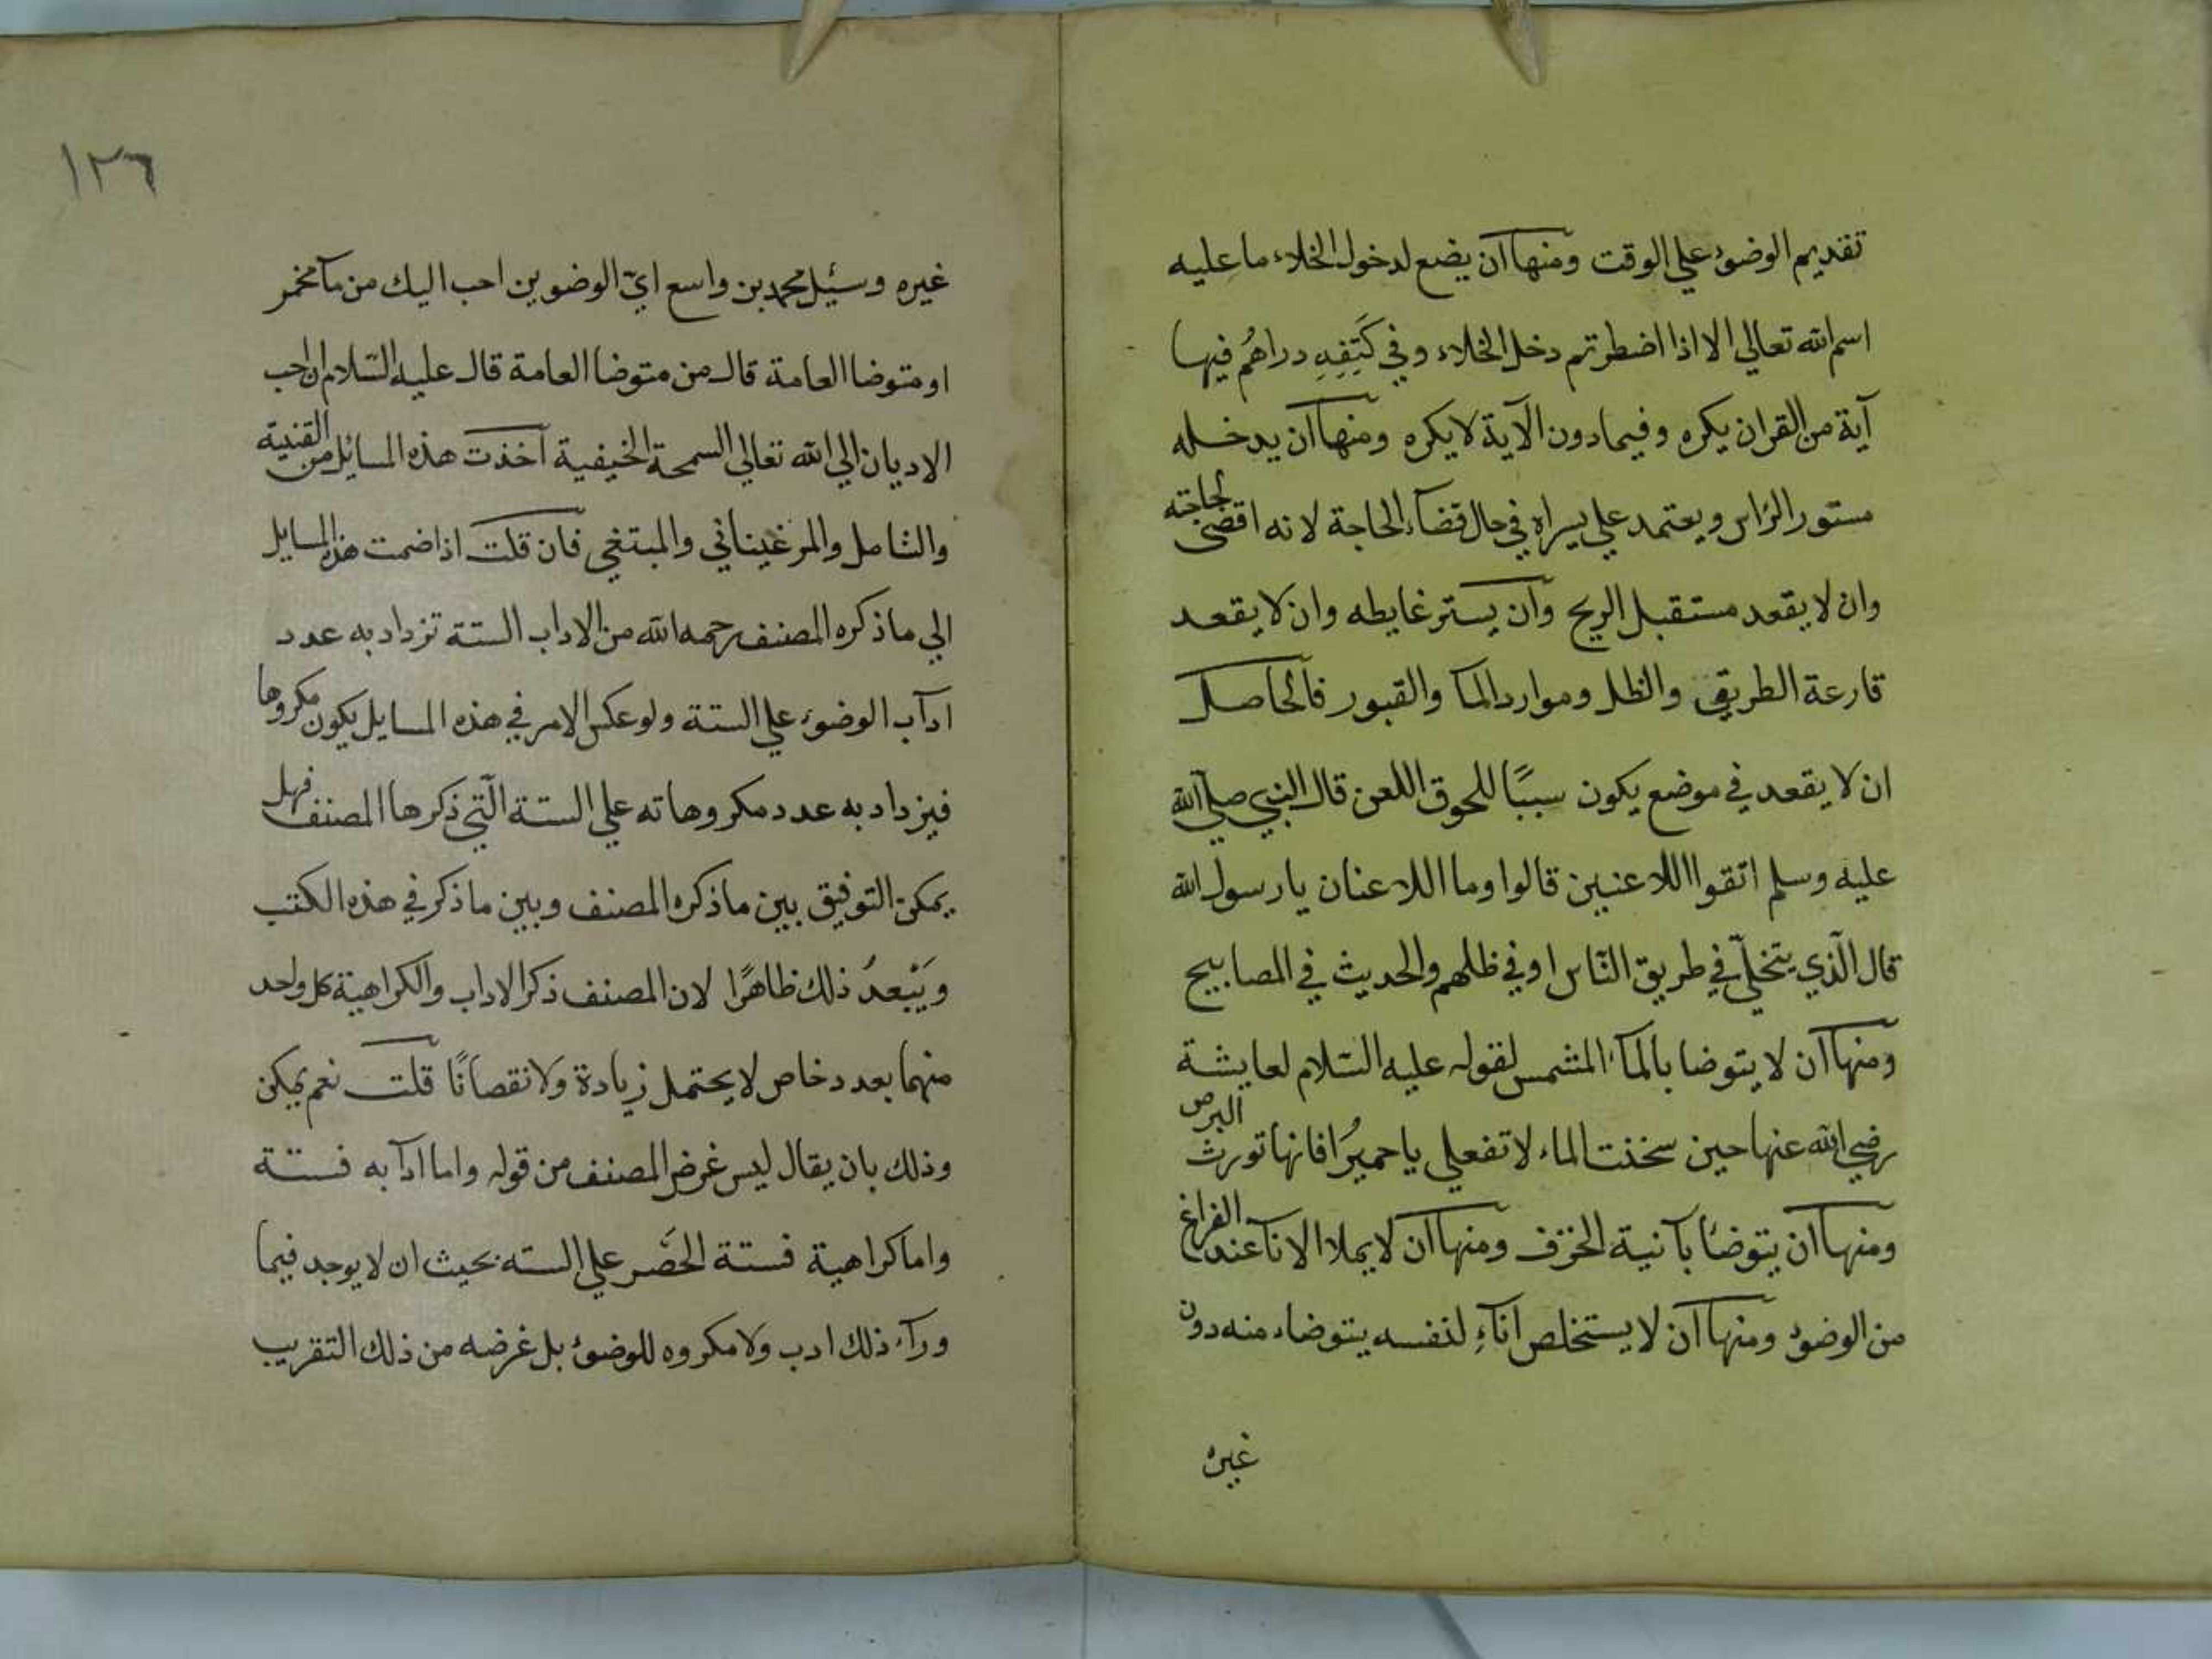 تقديم الوضوء علي الوقت ومنها ان يضع لدخول الخلاء ما عليه
اسم الله تعالي الا اذا اضطر ثم دخل الخلاء وفي كَتِفِهِ دراهُم فيها
آية من القران يكره وفيما دون الآية لا يكره ومنها ان يدخله
مستور الراس ويعتمد علي يسراه في حال قضآء الحاجة لانه اقضى لحاجته
وان لا يقعد مستقبل الريح وان يستر غايطه وان لا يقعد
قارعة الطريق والظل وموارد المآ والقبور فالحاصل
ان لا يقعد في موضع يكون سببًا للحوق اللعن قال النبي صلي الله
عليه وسلم اتقوا اللاعنين قالوا وما اللاعنان يا رسول الله
قال الّذي يتخلّي في طريق النّاس او في ظلهم والحديث في المصابيح
ومنها ان لا يتوضا بالمآء المشمس لقوله عليه السّلام لعايشة
رضي الله عنها حين سخنت الماء لا تفعلي يا حميرُا فانها تورث البرص
ومنها ان يتوضأ بآنية الخزف ومنها ان لا يملا الانآ عند الفراغ
من الوضوء ومنها ان لا يستخلص انآءِ لنفسه يتوضاء منه دون
غيره
١٢٦
غيره وسئيل محمد بن واسع ايّ الوضوين احب اليك من مآ مخمر
او متوضا العامة قال من متوضا العامة قال عليه السّلام ان احب
الاديان الي الله تعالي السمحة الخيفية آخذت هذه المسائل من القنية
والشامل والمرغيناني والمبتغي فان قلت اذا ضمت هذه المسايل
الي ما ذكره المصنف رحمه الله من الاداب الستة تزداد به عدد
ادآب الوضوء علي الستة ولو عكس الامر في هذه المسايل يكون مكروها
فيزداد به عدد مكروهاته علي الستة الّتي ذكرها المصنف فهل
يمكن التوفيق بين ما ذكره المصنف وبين ما ذكر في هذه الكتب
وَيَبْعدُ ذلك ظاهرًا لان المصنف ذكر الاداب والكراهية كل واحد
منهما بعدد خاص لا يحتمل زيادة ولا نقصانًا قلت نعم يمكن
وذلك بان يقال ليس غرض المصنف من قوله واما ادآبه فستة
واما كراهية فستة الحَصْر علي السته بحيث ان لا يوجد فيما
ورآء ذلك ادب ولا مكروه للوضوء بل غرضه من ذلك التقريب